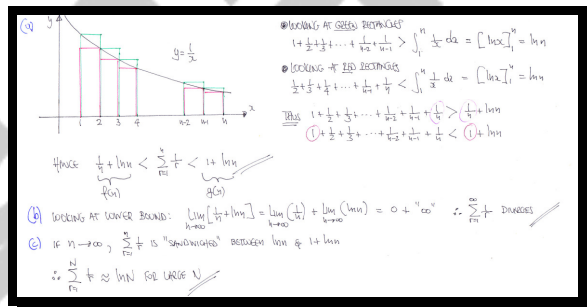 (a)
y
y = 1/x
x
1 2 3 4 n-2 n-1 n
• LOOKING AT GREEN RECTANGLES
1 + 1/2 + 1/3 + ... + 1/(n-2) + 1/(n-1) > ∫₁ⁿ 1/x dx = [lnx]₁ⁿ = ln n
• LOOKING AT RED RECTANGLES
1/2 + 1/3 + 1/4 + ... + 1/(n-1) + 1/n < ∫₁ⁿ 1/x dx = [lnx]₁ⁿ = ln n
THUS 1 + 1/2 + 1/3 + ... + 1/(n-2) + 1/(n-1) + 1/n > 1/n + ln n
1 + 1/2 + 1/3 + ... + 1/(n-2) + 1/(n-1) + 1/n < 1 + ln n
HENCE 1/n + ln n < Σ_{r=1}^{n} 1/r < 1 + ln n
f(n) g(n)
(b) LOOKING AT LOWER BOUND: Lim_{n→∞} [1/n + ln n] = Lim_{n→∞} (1/n) + Lim_{n→∞} (ln n) = 0 + "∞" ∴ Σ_{r=1}^{∞} 1/r DIVERGES
(c) IF n→∞, Σ_{r=1}^{n} 1/r IS "SANDWICHED" BETWEEN ln n & 1 + ln n
∴ Σ_{r=1}^{N} 1/r ≈ ln N FOR LARGE N